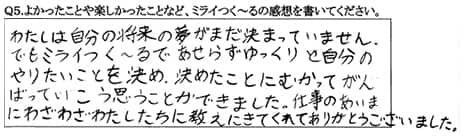 Q5.よかったことや楽しかったことなど、ミライつく〜るの感想を書いてください。
わたしは自分の将来の夢がまだ決まっていません.
でもミライつく〜るであせらずゆっくりと自分の
やりたいことを決め、決めたことにむかってがん
ばっていこう思うことができました。仕事のあいま
にわざわざわたしたちに教えにきてくれてありがとうございました。